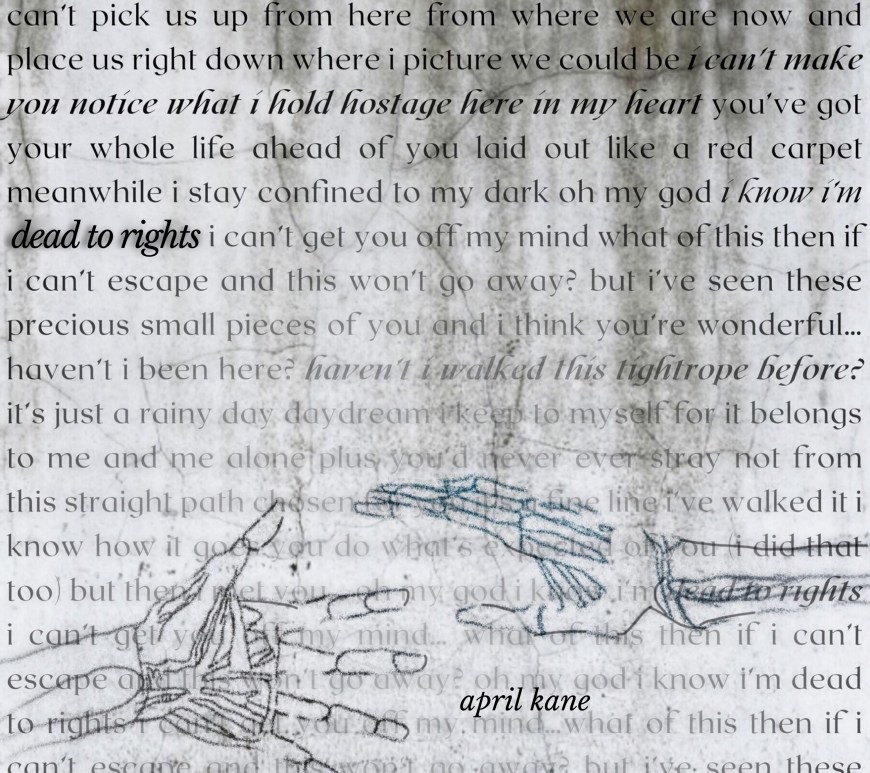 can't pick us up from here from where we are now and
place us right down where i picture we could be i can't make
you notice what i hold hostage here in my heart you've got
your whole life ahead of you laid out like a red carpet
meanwhile i stay confined to my dark oh my god i know i'm
dead to rights i can't get you off my mind what of this then if
i can't escape and this won't go away? but i've seen these
precious small pieces of you and i think you're wonderful...
haven't i been here? haven't i walked this tightrope before?
it's just a rainy day daydream i keep to myself for it belongs
to me and me alone plus you'd never ever stray not from
this straight path chosen fine line i've walked it i
know how it goes you do what's expected of you (i did that
too) but then i met you... oh my god i know i'm dead to rights
i can't get you off my mind... what of this then if i can't
escape and this won't go away? oh my god i know i'm dead
april kane
to rights i can't get you off my mind...what of this then if i
can't escape and this won't go away? but i've seen these